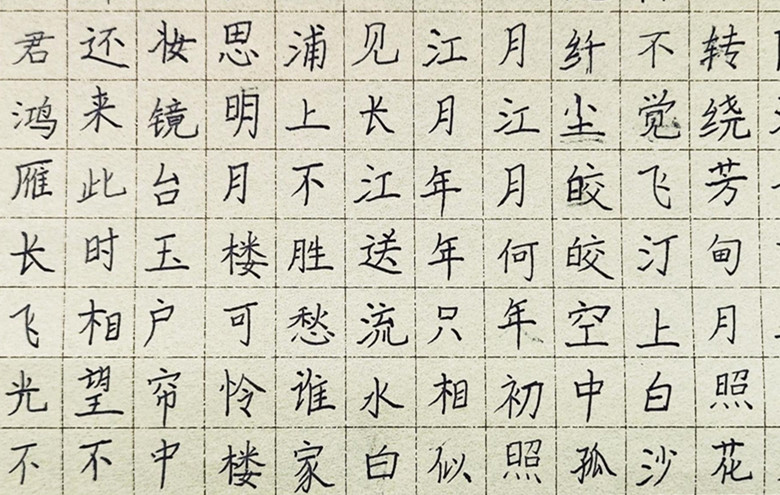 转绕芳甸月照花
不觉飞汀上白沙
纤尘皎皎空中孤
月江月何年初照
江月年年只相似
见长江送流水白
浦上不胜愁谁家
思明月楼可怜楼
妆镜台玉户帘中
还来此时相望不
君鸿雁长飞光不